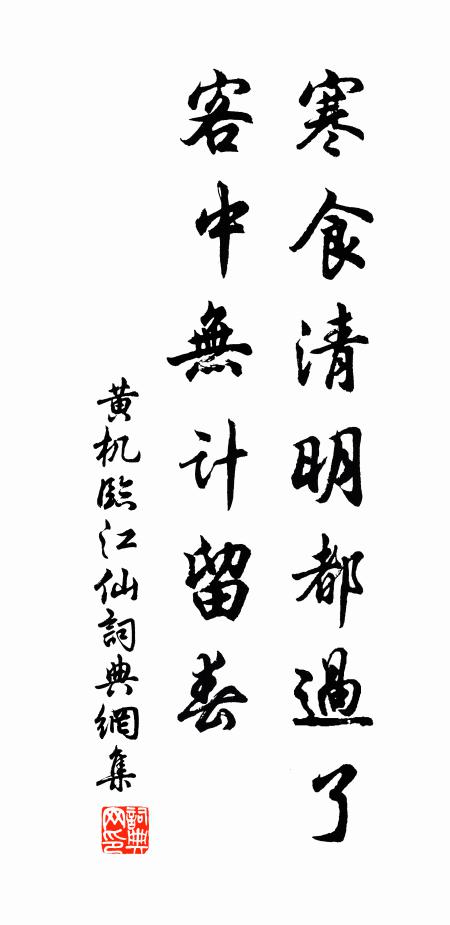 寒食清明都過了
客中無計留春
黄机臨江仙詞典網集
詞典网印